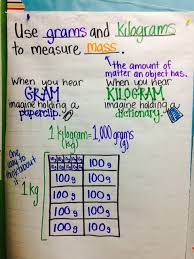 Use grams and kilograms
to measure mass.
the amount of
matter an object has.
When you hear
GRAM
imagine holding a
paperclip.
When you hear
KILOGRAM
imagine holding a
dictionary.
1 kilogram = 1,000 grams
(kg) (g)
One way to think about it
1 kg
100g
100g 100g
100g 100g
100g 100g
100g 100g